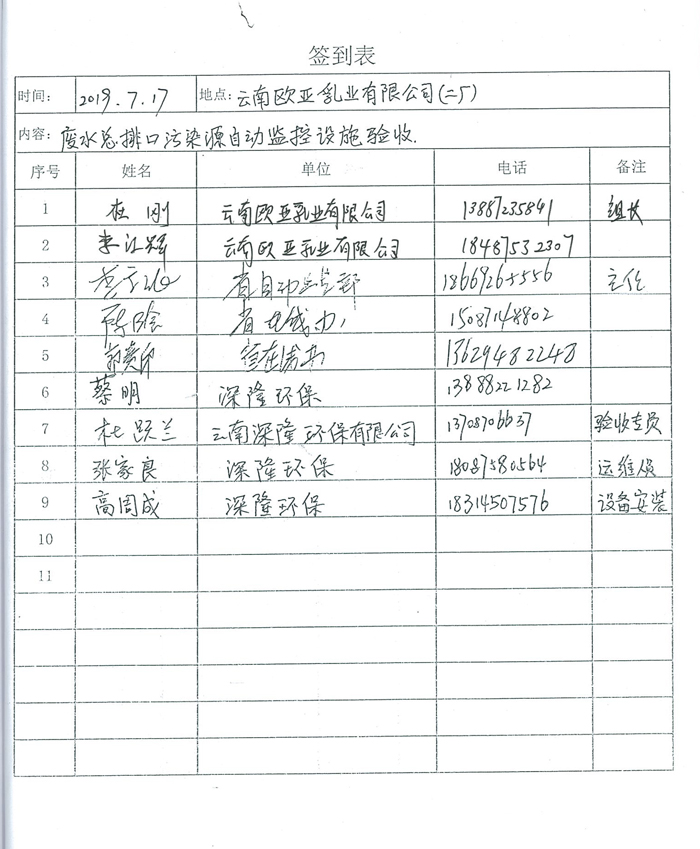 签到表
时间: 2019.7.17 地点: 云南欧亚乳业有限公司(二厂)
内容: 废水总排口污染源自动监控设施验收.
序号 姓名 单位 电话 备注
1 杜刚 云南欧亚乳业有限公司 13887235841 组长
2 李江辉 云南欧亚乳业有限公司 18487532307
3 省自动监控 18669265556 主任
4 省在线办 15087148802
5 13629482248
6 蔡明 深隆环保 13888221282
7 杜跃兰 云南深隆环保有限公司 13708706637 验收专员
8 张家良 深隆环保 18087580564 运维员
9 高周成 深隆环保 18314507576 设备安装
10
11